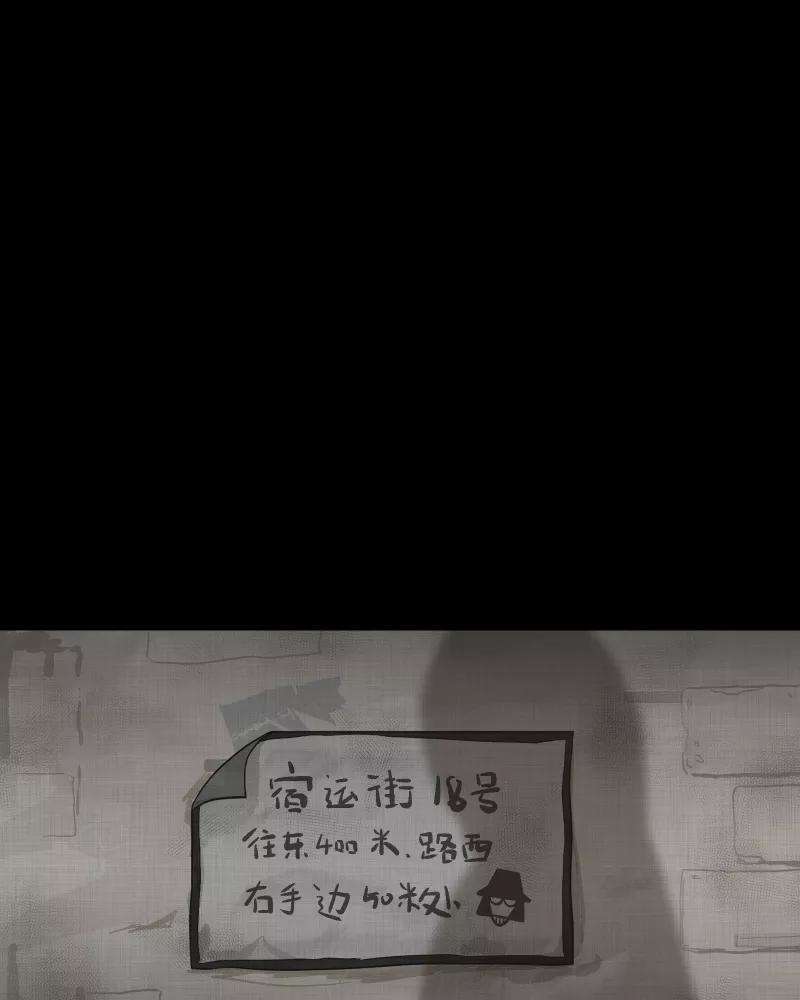 宿运街 18号
往东400米、路西
右手边50米处